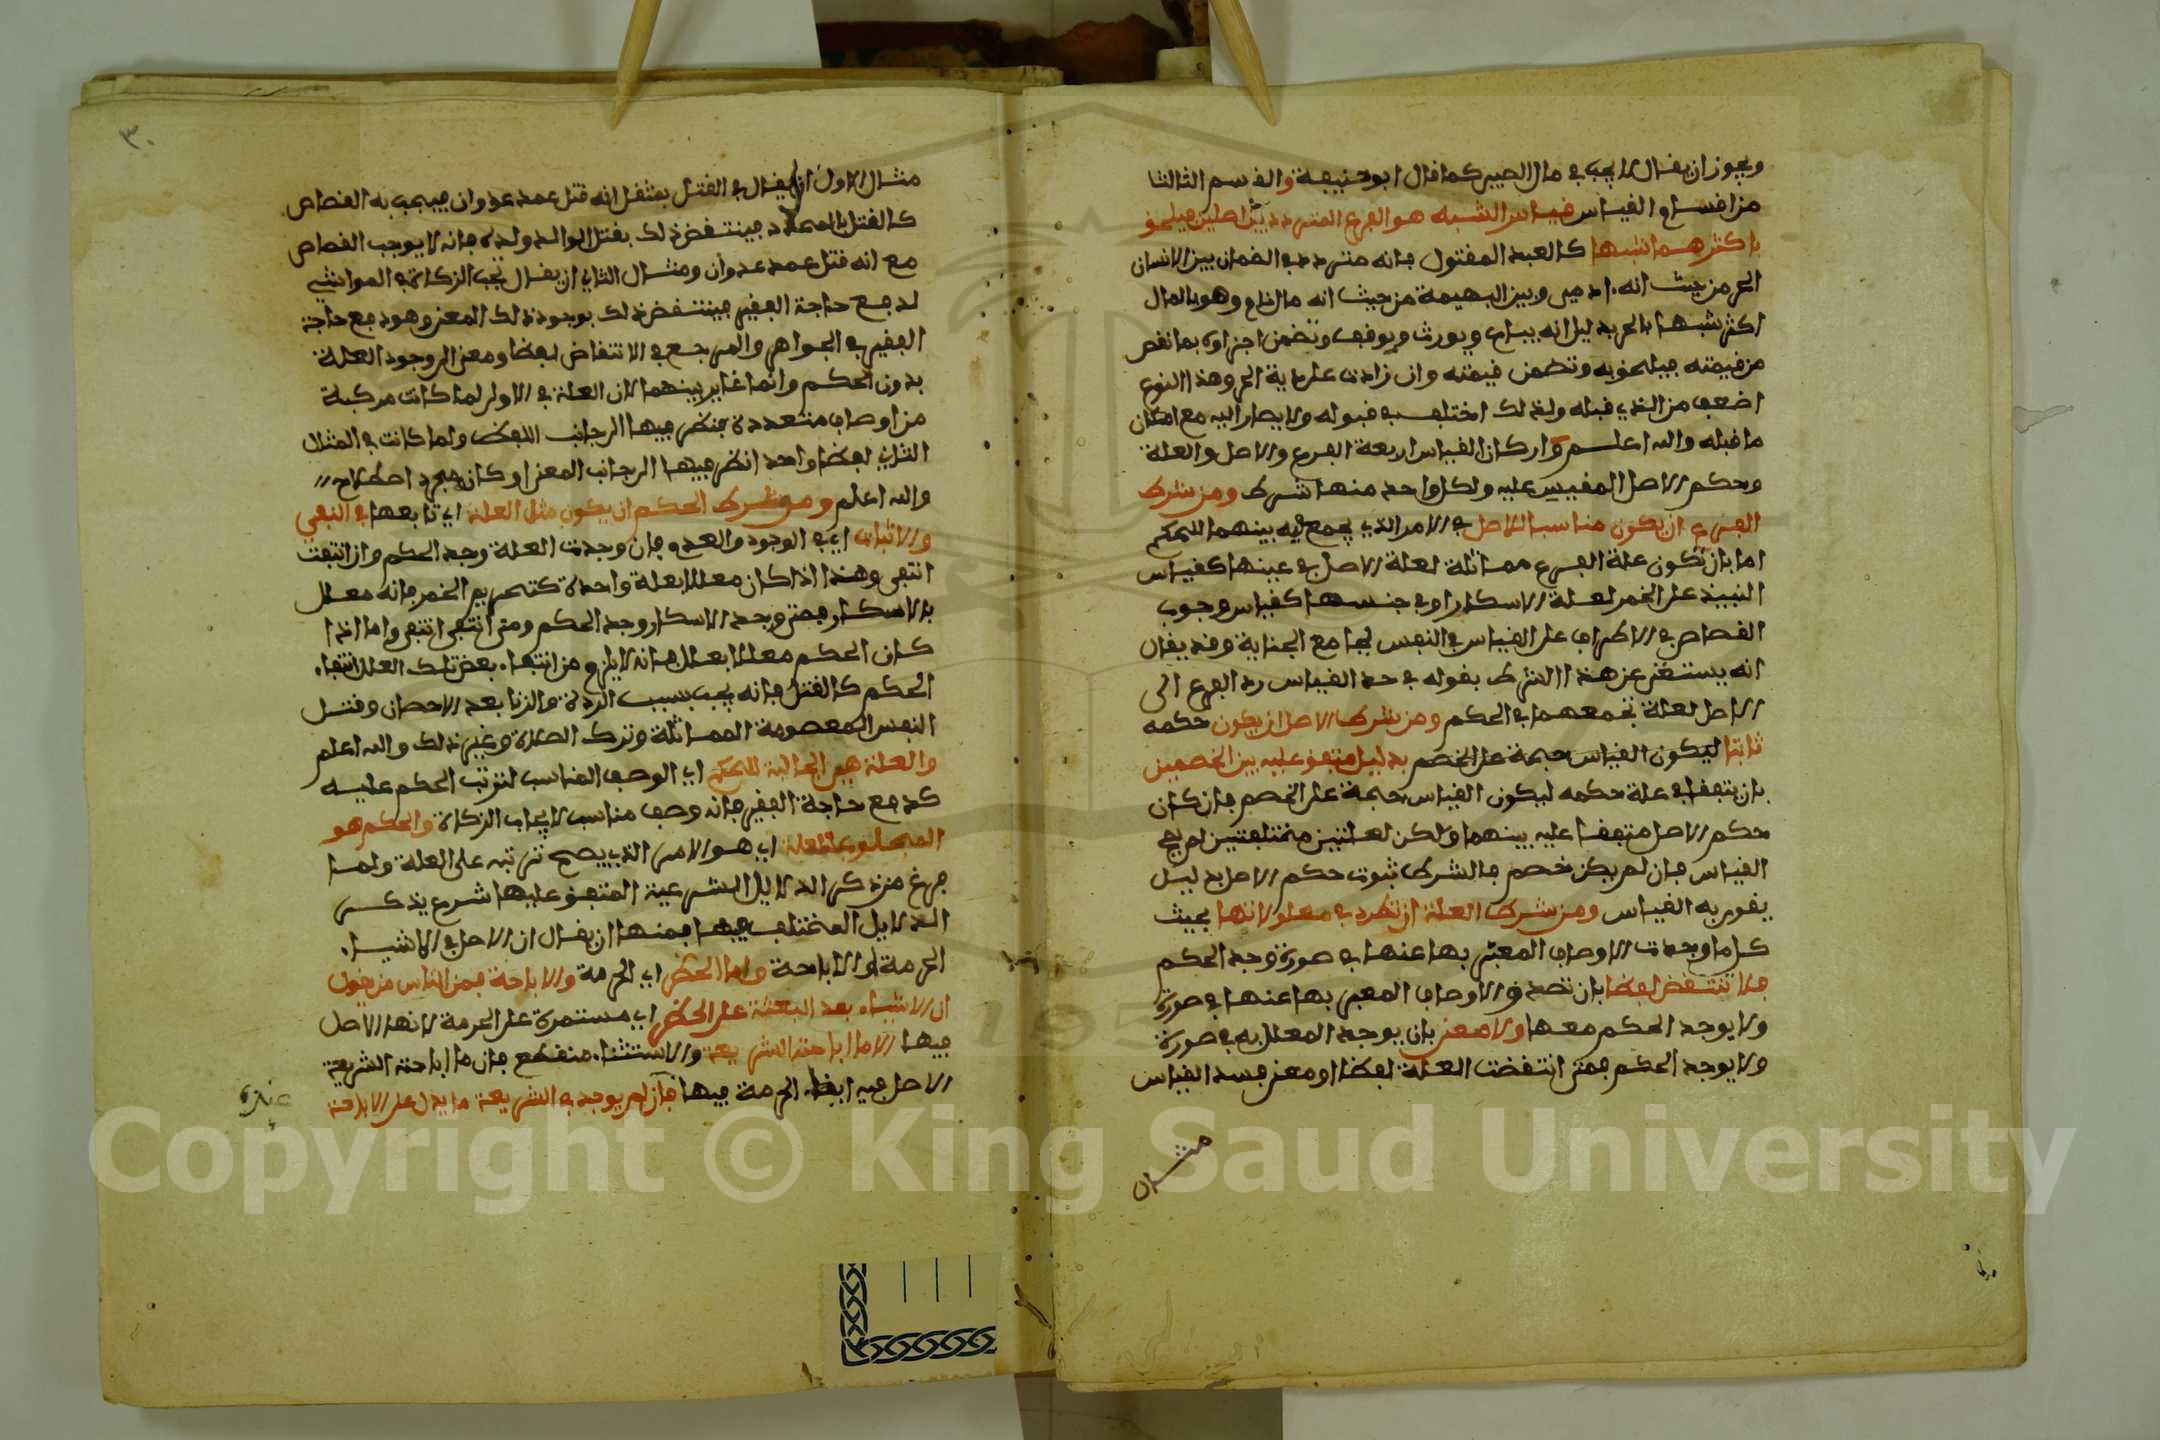 ويجوز ان يقال لا يجب في مال الصبي كما قال ابو حنيفة والقسم الثالث
من اقسام القياس قياس الشبه هو الفرع المتردد بين اصلين فيلحق
باكثرهما شبها كالعبد المقتول فانه متردد في الضمان بين الانسان
الحر من حيث انه ادمي وبين البهيمة من حيث انه مال وهو بالمال
اكثر شبها بالحر بدليل انه يباع ويورث ويوقف وتضمن اجزاوه بما نقص
من قيمته فيلحق به وتضمن قيمته وان زادت على دية الحر وهذا النوع
اضعف من الذي قبله ولذلك اختلف في قبوله ولا يصار اليه مع امكان
ما قبله والله اعلم واركان القياس اربعة الفرع والاصل والعلة
وحكم الاصل المقيس عليه ولكل واحد منها شرط ومن شرط
الفرع ان يكون مناسبا للاصل في الامر الذي يجمع به بينهما للحكم
اما بان تكون علة الفرع مماثلة لعلة الاصل في عينها كقياس
النبيذ على الخمر لعلة الاسكار او في جنسها كقياس وجوب
القصاص في الاطراف على القياس في النفس بجامع الجناية وقد يقال
انه يستغنى عن هذا الشرط بقوله في حد القياس رد الفرع الى
الاصل لعلة تجمعهما في الحكم ومن شرط الاصل ان يكون حكمه
ثابتا ليكون القياس حجة على الخصم بدليل متفق عليه بين الخصمين
بان يتفقا في علة حكمه ليكون القياس حجة على الخصم فان كان
حكم الاصل متفقا عليه بينهما ولكن لعلتين مختلفتين لم يصح
القياس فان لم يكن خصم فالشرط ثبوت حكم الاصل بدليل
يقول به القياس ومن شرط العلة ان تطرد في معلولاتها بحيث
كلما وجدت الاوصاف المعبر بها عنها في صورة وجد الحكم
فلا تنتقض لفظا بان تصدق الاوصاف المعبر بها عنها في صورة
ولا يوجد الحكم معها ولا معنى بان يوجد المعلل به في صورة
ولا يوجد الحكم فمتى انتقضت العلة لفظا او معنى فسد القياس
مثال
٣٠
مثال الاول ان يقال في القتل بمثقل انه قتل عمد عدوان فيجب به القصاص
كالقتل بالمحدد فينتقض ذلك بقتل الوالد ولده فانه لا يوجب القصاص
مع انه قتل عمد عدوان ومثال الثاني ان يقال تجب الزكاة في المواشي
لدفع حاجة الفقير فينتقض ذلك بوجود ذلك المعنى وهو دفع حاجة
الفقير في الجواهر والمرجع في الانتقاض لفظا ومعنى الى وجود العلة
بدون الحكم وانما غاير بينهما لان العلة في الاول لما كانت مركبة
من اوصاف متعددة نظر فيها الى جانب اللفظ ولما كانت في المثال
الثاني لفظا واحدا نظر فيها الى جانب المعنى او كان مجرد اصطلاح
والله اعلم ومن شرط الحكم ان يكون مثل العلة اي تابعها في النفي
والاثبات اي في الوجود والعدم فان وجدت العلة وجد الحكم وان انتفت
انتفى وهذا اذا كان معللا بعلة واحدة كتحريم الخمر فانه معلل
بالاسكار فمتى وجد الاسكار وجد الحكم ومتى انتفى انتفى واما اذا
كان الحكم معللا بعلل فانه لا يلزم من انتفاء بعض تلك العلل انتفاء
الحكم كالقتل فانه يجب بسبب الردة والزنا بعد الاحصان وقتل
النفس المعصومة المماثلة وترك الصلاة وغير ذلك والله اعلم
والعلة هي الجالبة للحكم اي الوصف المناسب لترتب الحكم عليه
كدفع حاجة الفقير فانه وصف مناسب لايجاب الزكاة والحكم هو
المجلوب للعلة اي هو الامر الذي يصح ترتبه على العلة ولما
فرغ من ذكر الدلايل الشرعية المتفق عليها شرع يذكر
الدلايل المختلف فيها فمنها ان يقال ان الاصل في الاشياء
الحرمة او الاباحة واما الحظر اي الحرمة والاباحة فمن الناس من يقول
ان الاشياء بعد البعثة على الحظر اي مستمرة على الحرمة لانها الاصل
فيها الا ما اباحته الشريعة والاستثناء منقطع فان ما اباحته الشريعة
الاصل فيه ايضا الحرمة فيها فان لم يوجد في الشريعة ما يدل على الاباحة
Copyright © King Saud University